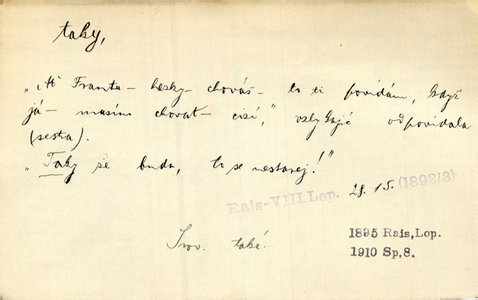 taky,
"A Frantu – hezky – chováš – to ti povídám, když
já – musím chovat – cizí," vzlykajíc odpovídala
(sestra).
"Taky že budu, to se nestarej!"
Rais-VIII.Lop. 28. 15. (1892/3)
Srov. také.
1895 Rais,Lop.
1910 Sp.8.